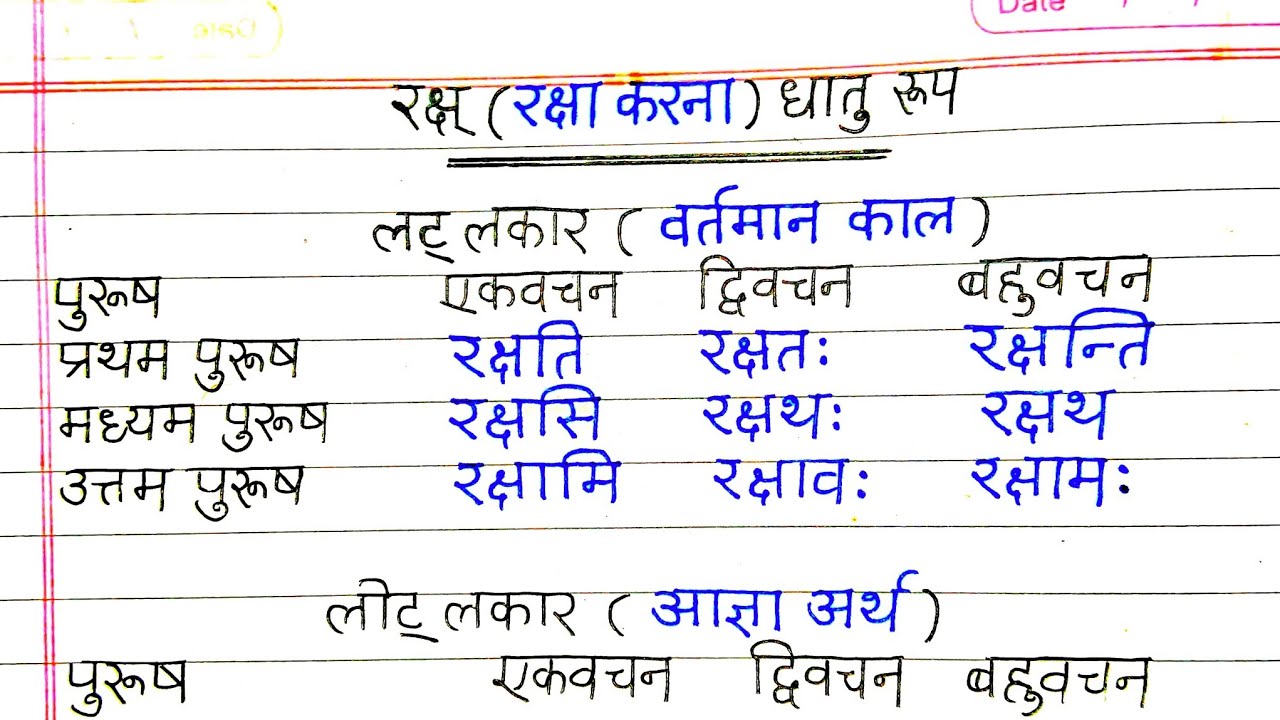 Date / /
रक्ष् (रक्षा करना) धातु रूप
लट् लकार ( वर्तमान काल )
पुरूष एकवचन द्विवचन बहुवचन
प्रथम पुरूष रक्षति रक्षतः रक्षन्ति
मध्यम पुरूष रक्षसि रक्षथः रक्षथ
उत्तम पुरूष रक्षामि रक्षावः रक्षामः
लोट् लकार ( आज्ञा अर्थ )
पुरूष एकवचन द्विवचन बहुवचन